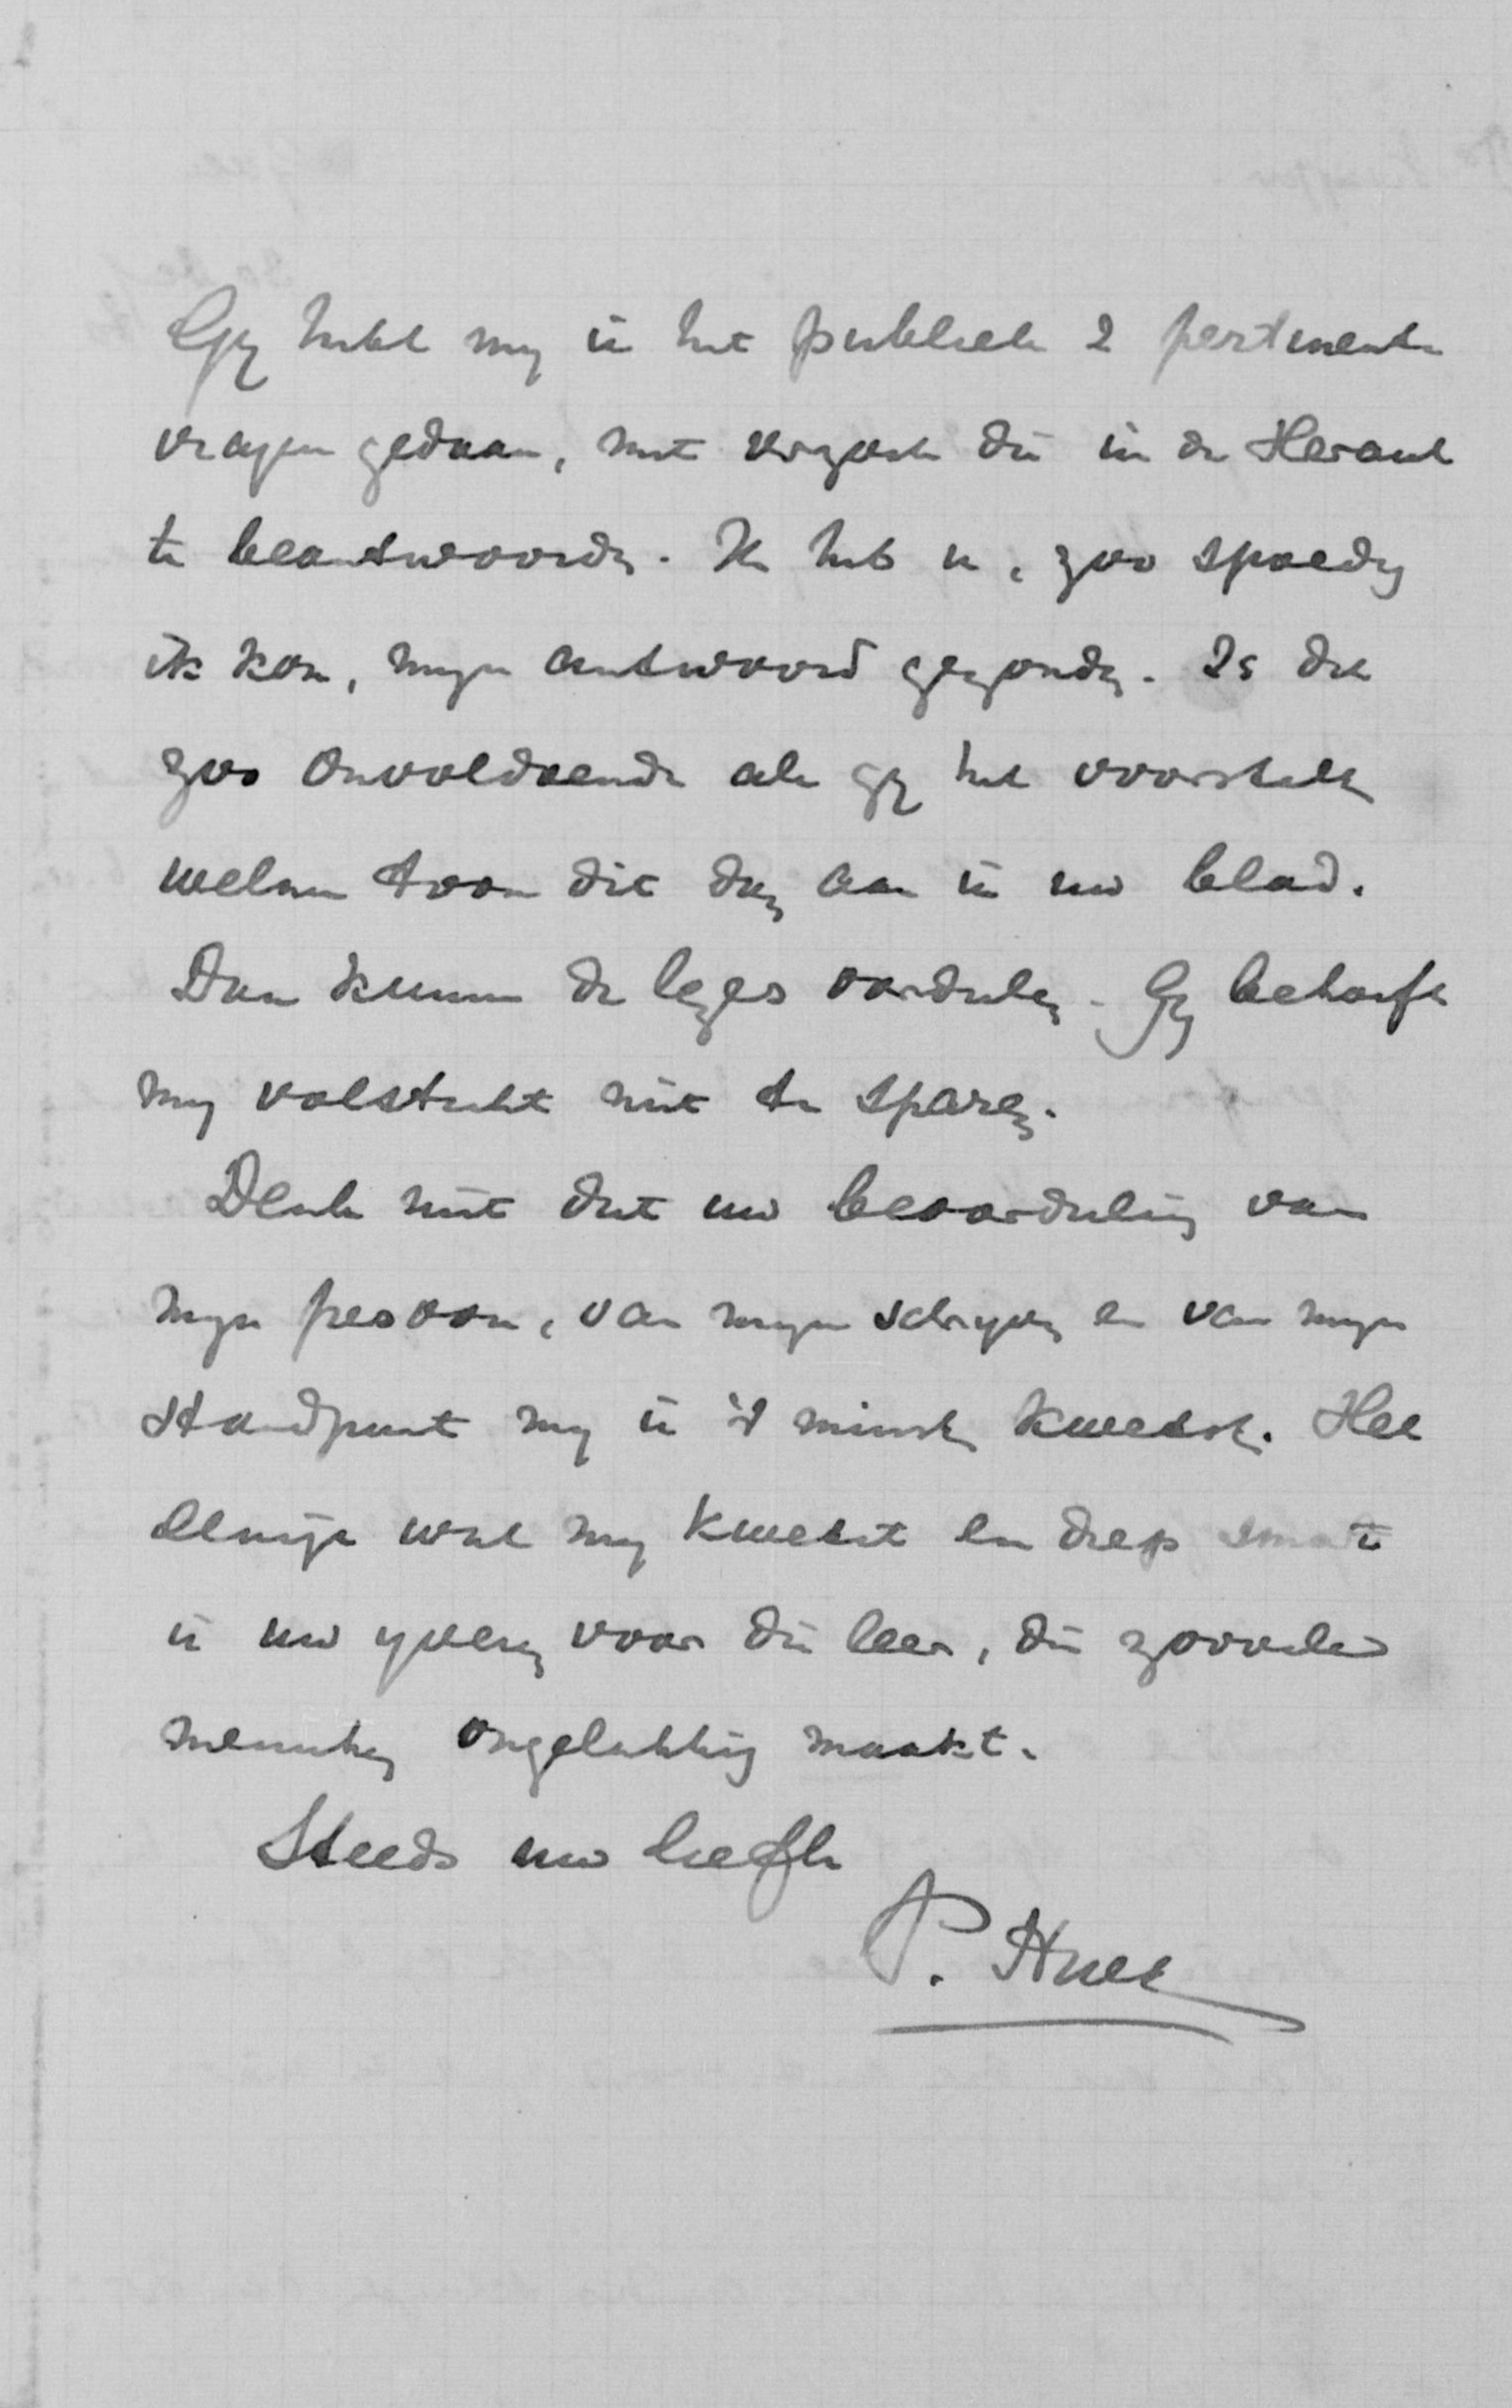 Gij hebt mij in het publiek 2 pertinente
vragen gedaan, met verzoek die in de Heraut
te beantwoorden. Ik heb u, zoo spoedig
ik kon, mijn antwoord gezonden. Is dit
zoo onvoldoende als gij het voorstelt
welnu toon dit dan aan in uw blad.
Dan kunnen de lezers oordeelen. Gij behoeft
mij volstrekt niet te sparen.
Denk niet dat uw beoordeeling van
mijn persoon, van mijn schrijven en van mijn
standpunt mij in 't minste kwetst. Het
eenige wat mij kwetst en diep smart
is uw ijveren voor die leer, die zoovele
menschen ongelukkig maakt.
Steeds uw liefh
P. Huet